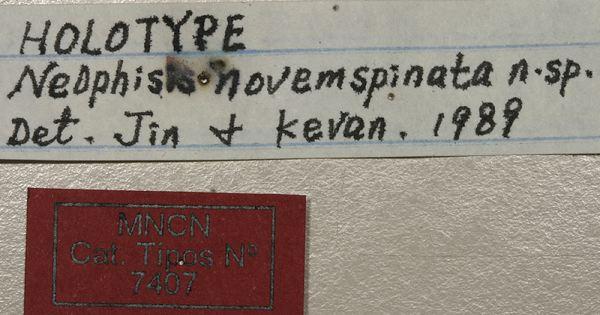 HOLOTYPE
Neophisis novemspinata n.sp.
Det. Jin & Kevan. 1989
MNCN
Cat. Tipos Nº
7407